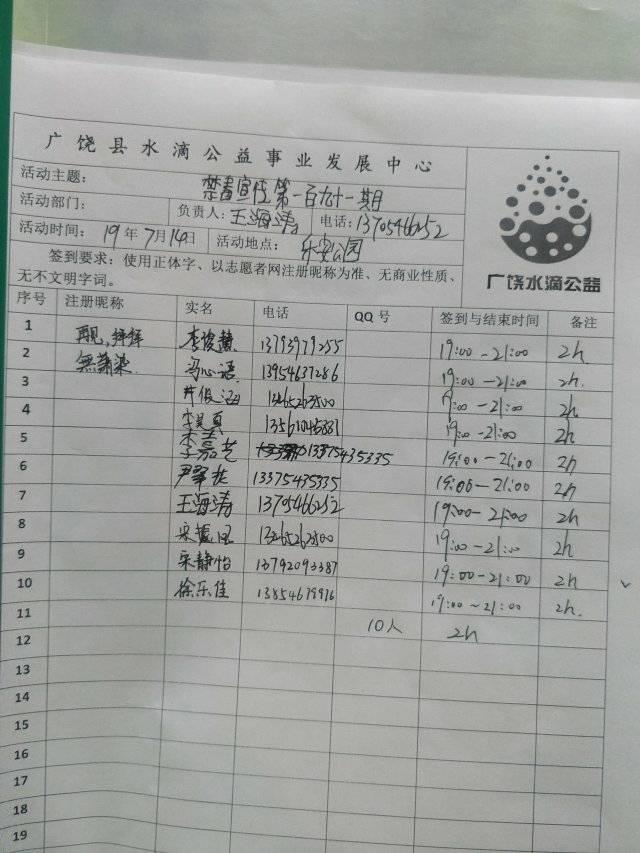 广饶县水滴公益事业发展中心
活动主题: 禁毒宣传第一百九十一期
活动部门: 负责人: 王海涛 电话: 13705466252
活动时间: 19年7月14日 活动地点: 乐安公园
签到要求: 使用正体字、以志愿者网注册昵称为准、无商业性质、
无不文明字词。
广饶水滴公益
序号 注册昵称 实名 电话 QQ 号 签到与结束时间 备注
1 再见,拜拜 李俊慧 13793979255 19:00-21:00 2h
2 無 冯心语 13954637286 19:00-21:00 2h.
3 19:00-21:00 2h
4 李昊真 19:00-21:00 2h
5 李嘉艺 13375435335 19:00-21:00 2h
6 尹 13375435335 19:00-21:00 2h
7 王海涛 13705466252 19:00-21:00 2h
8 宋 13265262800 19:00-21:00 2h
9 宋静怡 13792093387 19:00-21:00 2h
10 徐乐佳 13854679916 19:00~21:00 2h.
11 10人 2h
12
13
14
15
16
17
18
19